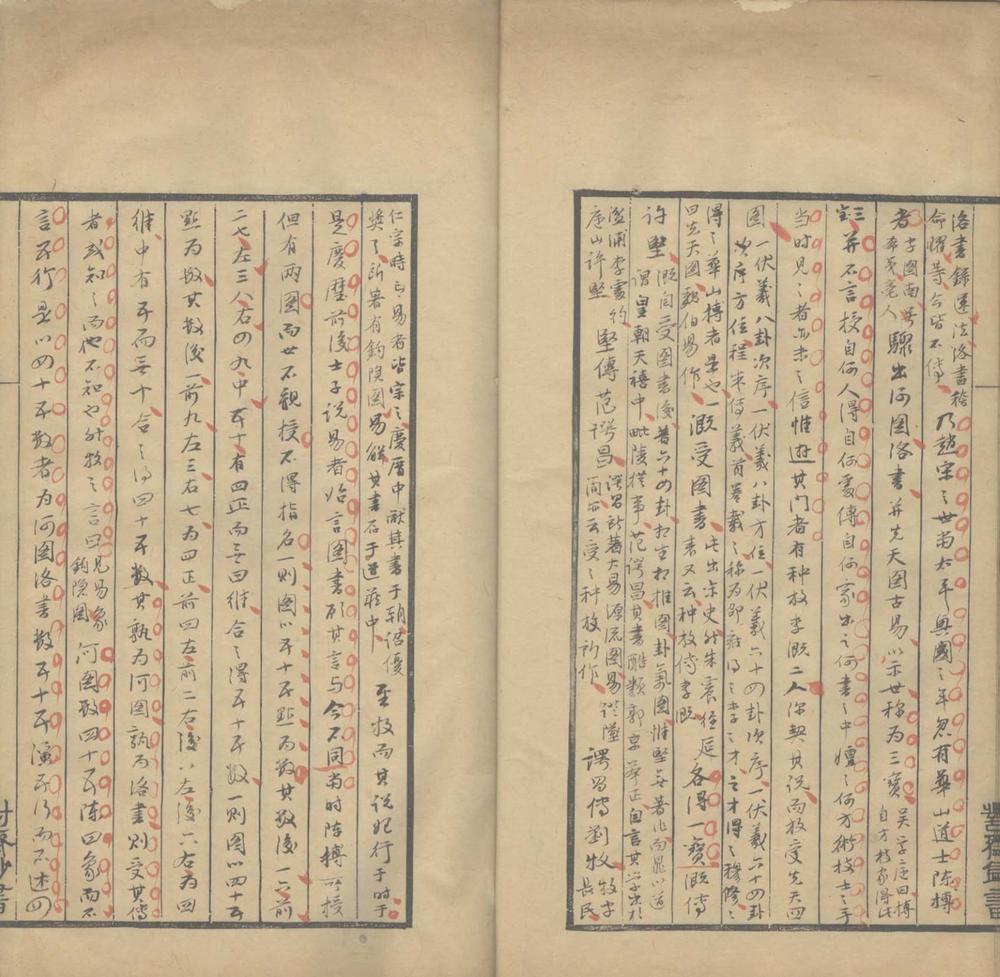 洛書錄運法洛書稽
命曜等今皆不傳
乃趙宋之世當太平興國之年忽有華山道士陳摶
者
字圖南號
希夷亳人
驟出河圖洛書并先天圖古易以示世稱為三寶
自方技家得此
三寶并不言授自何人得自何處傳自何家出之何書之中嬗之何方術技士之手
當時見之者亦未之信惟遊其門者有种放李溉二人深契其說而放受先天四
圖
一伏羲八卦次序一伏羲八卦方位一伏羲六十四卦次序一伏羲六十四卦
次序方位程朱傳義首卷載之稱為邵雍得之李之才之才得之穆修之
得之華山摶者是也
曰先天圖魏伯陽作
溉受圖書
此出宋史外朱震經筵
表又云种放傳李溉
各得一寶溉傳
許堅
溉自受圖書後著六十四卦相生相推圖卦氣圖惟堅無著作而晁以道
謂皇朝天禧中毗陵從事范諤昌其書雖類郭京舉正自言其學出於
湓浦李處約
廬山許堅
堅傳范諤昌
諤昌所著大易源流圖易證墜
云受之种放所作
諤昌傳劉牧
牧字
長民
仁宗時言易者皆宗之慶曆中獻其書于朝詔優
獎之所著有鈎隱圖易解其書存于道藏中
至牧而其說始行于時于
是慶歷前後士子說易者始言圖書顧其言與今不同當時陳摶所授
但有兩圖而世不親授不得指名一則圖以五十五點為數其數後一六前
二七左三八右四九中五十有四正而無四維合之得五十五數一則圖以四十五
點為數其數後一前九左三右七為四正前四左前二右後八左後六右為四
維中有五而無十合之得四十五數其孰為河圖孰為洛書則受其傳
者或知之而他不知也外牧之言曰
見易象
鈎隱圖
河圖數四十五陳四象而不
言五行是以四十五數者為河圖洛書數五十五演五行而不述四